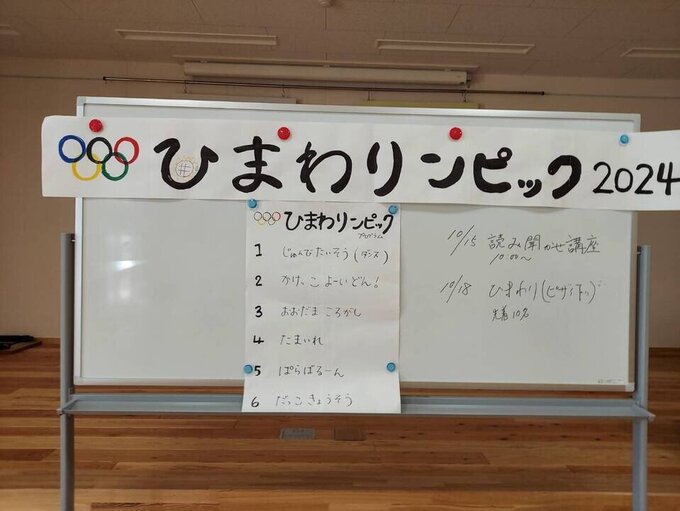 ひまわりンピック 2024
ひまわりンピック
プログラム
1 じゅんびたいそう(ダンス)
2 かけっこ よーいどん!
3 おおだま ころがし
4 たまいれ
5 ぱらばるーん
6 だっこきょうそう
10/15 読み聞かせ講座
10:00~
10/18 ひまわり(ピザ作り)
定員10名